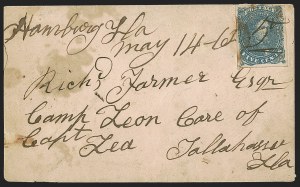 Hamburg Fla
May 14
Richd Farmer Esqr
Camp Leon Care of
Capt Lea Tallahassee
Fla
FIVE CENTS